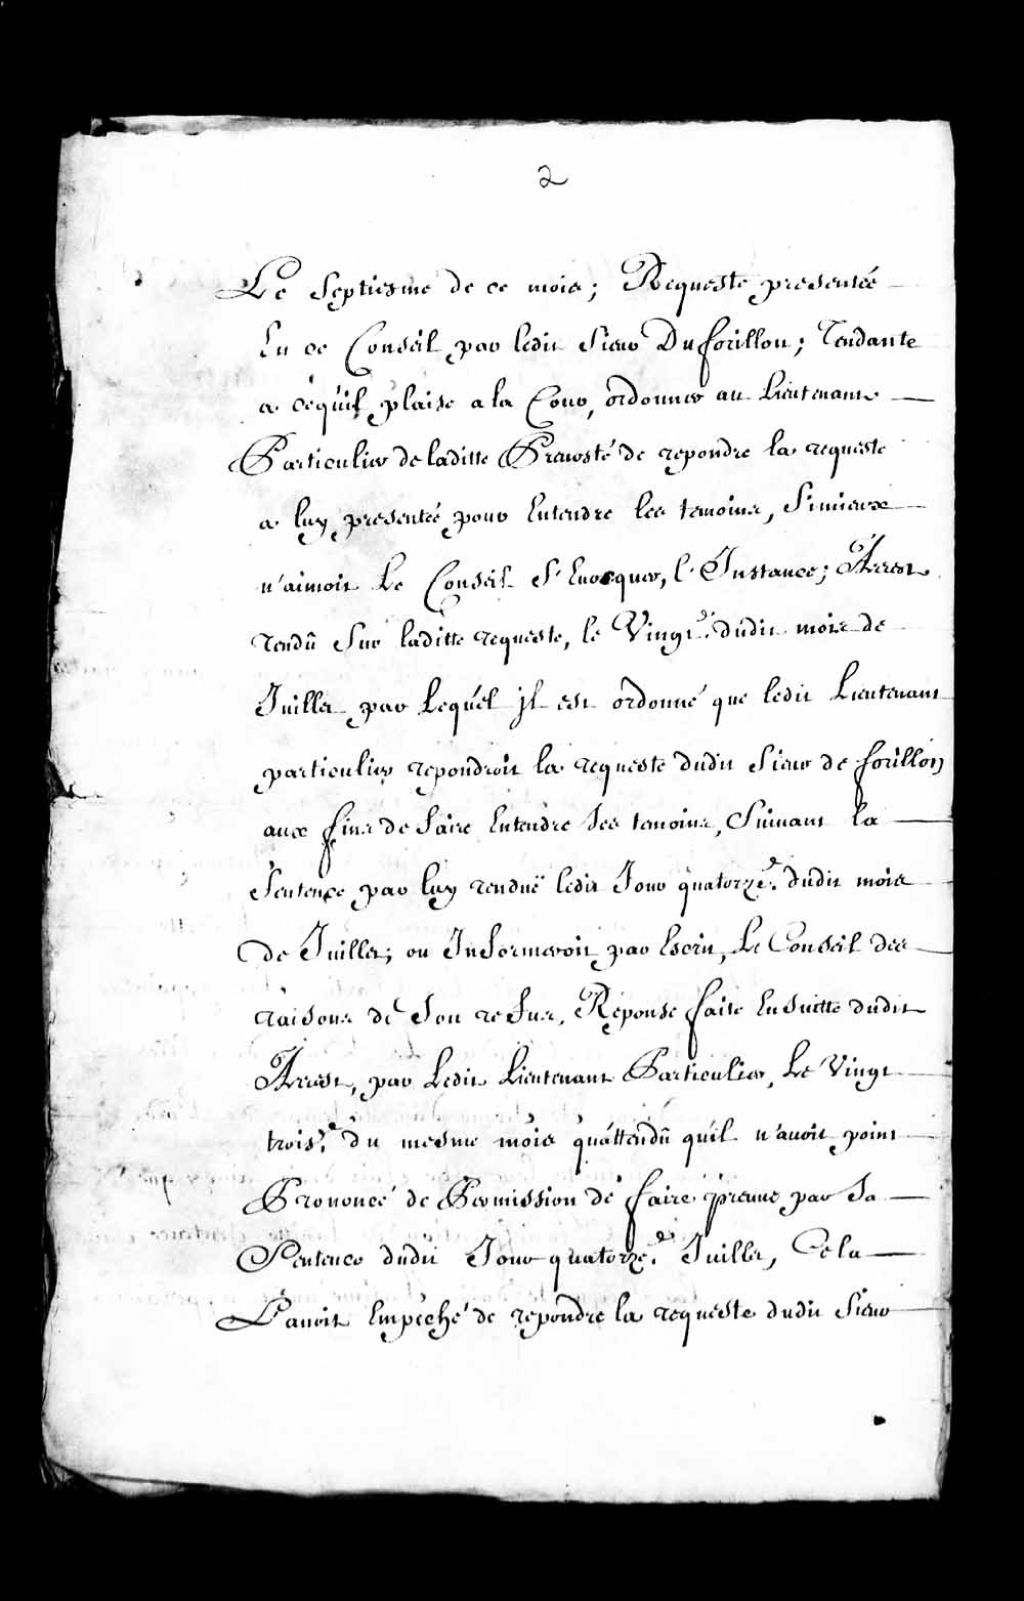 2
Le Septiesme de ce mois; Requeste presentée
En ce Conseil par ledit Sieur Duforillon; Tendante
a cequil plaise a la Cour, ordonner au Lieutenant
Particulier de laditte Prevosté de repondre la requeste
a luy presentée pour Entendre les temoins, Simieux
n'aimoit Le Conseil S'Evocquer, l'Instance; Arrest
rendû Sur laditte requeste, le Vingt.e dudit mois de
Juillet par Lequél jl est ordonné que ledit Lieutenant
particulier repondroit la requeste dudit Sieur de forillon
aux fins de faire Entendre Ses temoins, Suivant la
Sentence par luy renduë ledit Jour quatorze.e dudit mois
de Juillet; ou Informeroit par Escrit, Le Conseil des
raisons de Son refus, Réponse faite Ensuitte dudit
Arrest, par Ledit Lieutenant Particulier, Le Vingt
trois.e du mesme mois qu'attendû quil n'avoit point
Prononcé de Permission de faire preuve par Sa
Sentence dudit Jour quatorze.e Juillet, Cela
L'avoit Empéché de repondre la requeste dudit Sieur